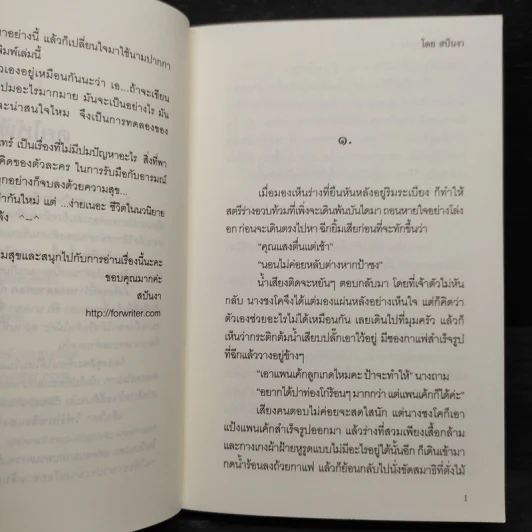 าอย่างนี้ แล้วก็เปลี่ยนใจมาใช้นามปากกา
พิมพ์เล่มนี้
วเองอยู่เหมือนกันนะว่า เอ...ถ้าจะเขียน
ปมอะไรมากมาย มันจะเป็นอย่างไร มัน
จะน่าสนใจไหม จึงเป็นการทดลองของ
ทร์ เป็นเรื่องที่ไม่มีปมปัญหาอะไร สิ่งที่พา
คิดของตัวละคร ในการรับมือกับอารมณ์
ทุกอย่างก็จบลงด้วยความสุข...
ำกันใหม่ แต่ ...ง่ายเนอะ ชีวิตในวนิยาย
ัง ^_^
มสุขและสนุกไปกับการอ่านเรื่องนี้นะคะ
ขอบคุณมากค่ะ
สปันงา
http://forwriter.com
โดย สปันงา
๑.
เมื่อมองเห็นร่างที่ยืนหันหลังอยู่ริมระเบียง ก็ทำให้
สตรีร่างอวบท้วมที่เพิ่งจะเดินพ้นบันไดมา ถอนหายใจอย่างโล่ง
อก ก่อนจะเดินตรงไปหา ฉีกยิ้มเสียก่อนที่จะทักขึ้นว่า
"คุณแสงตื่นแต่เช้า"
"นอนไม่ค่อยหลับต่างหากป้าชง"
น้ำเสียงติดจะหยันๆ ตอบกลับมา โดยที่เจ้าตัวไม่หัน
กลับ นางชงโคจึงได้แต่มองแผ่นหลังอย่างเห็นใจ แต่ก็คิดว่า
ตัวเองช่วยอะไรไม่ได้เหมือนกัน เลยเดินไปที่มุมครัว แล้วก็
เห็นว่ากระติกต้มน้ำเสียบปลั๊กเอาไว้อยู่ มีซองกาแฟสำเร็จรูป
ที่ฉีกแล้ววางอยู่ข้างๆ
"เอาแพนเค้กลูกเกดไหมคะ ป้าจะทำให้" นางถาม
"อยากได้ปาท่องโก๋ร้อนๆ มากกว่า แต่แพนเค้กก็ได้ค่ะ"
เสียงคนตอบไม่ค่อยจะสดใสนัก แต่นางชงโคก็เอา
แป้งแพนเค้กสำเร็จรูปออกมา แล้วร่างที่สวมเพียงเสื้อกล้าม
และกางเกงผ้าฝ้ายหูรูดแบบไม่มีอะไรอยู่ใต้นั้นอีก ก็เดินเข้ามา
กดน้ำร้อนลงถ้วยกาแฟ แล้วก็ย้อนกลับไปนั่งขัดสมาธิที่ตั่งไม้
1